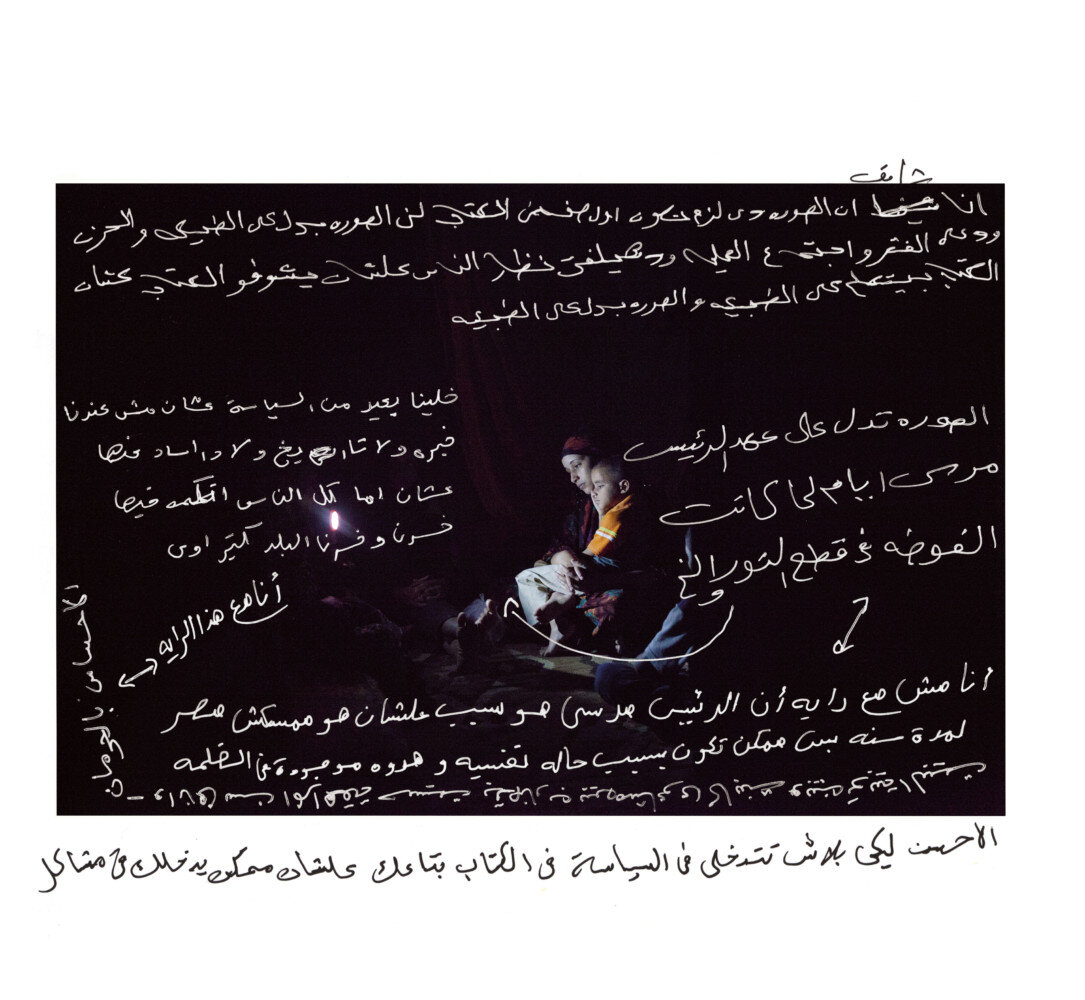 شايف
انا ان الصوره دى لازم تتكون اول صفحه فى الكتاب لان الصوره بتدل على الطبيعى والحزن
ودى الفقر واجتماع العيله ودى هيلفت نظر الناس علشان يشوفو الكتاب عشان
الكتاب بيتكلم على الطبيعه والصوره بتدل على الطبيعه
خلينا بعيد من السياسة عشان مش عندنا
خبره ولا تاريخ ولا دراسات عنها
عشان اما كل الناس اتكلمه فيها
خسرنا وخسرنا البلد كتير اوى
الصوره تدل على عهد الرئيس
مرسى ايام لما كانت
الفوضه فى قطع النور والخ
أنا مع هذا الرايه
الاحساس بالحرمان
أنا مش مع رايه أن الرئيس مرسى هو سبب علشان هو ممسكش مصر
لمدة سنه بس ممكن تكون بسبب حاله نفسيه و هدوه موجودة فى الضلمه
الاحسن ليكى بلاش تتدخلى فى السياسة فى الكتاب بتاعك علشان ممكن يدخلك فى مشاكل